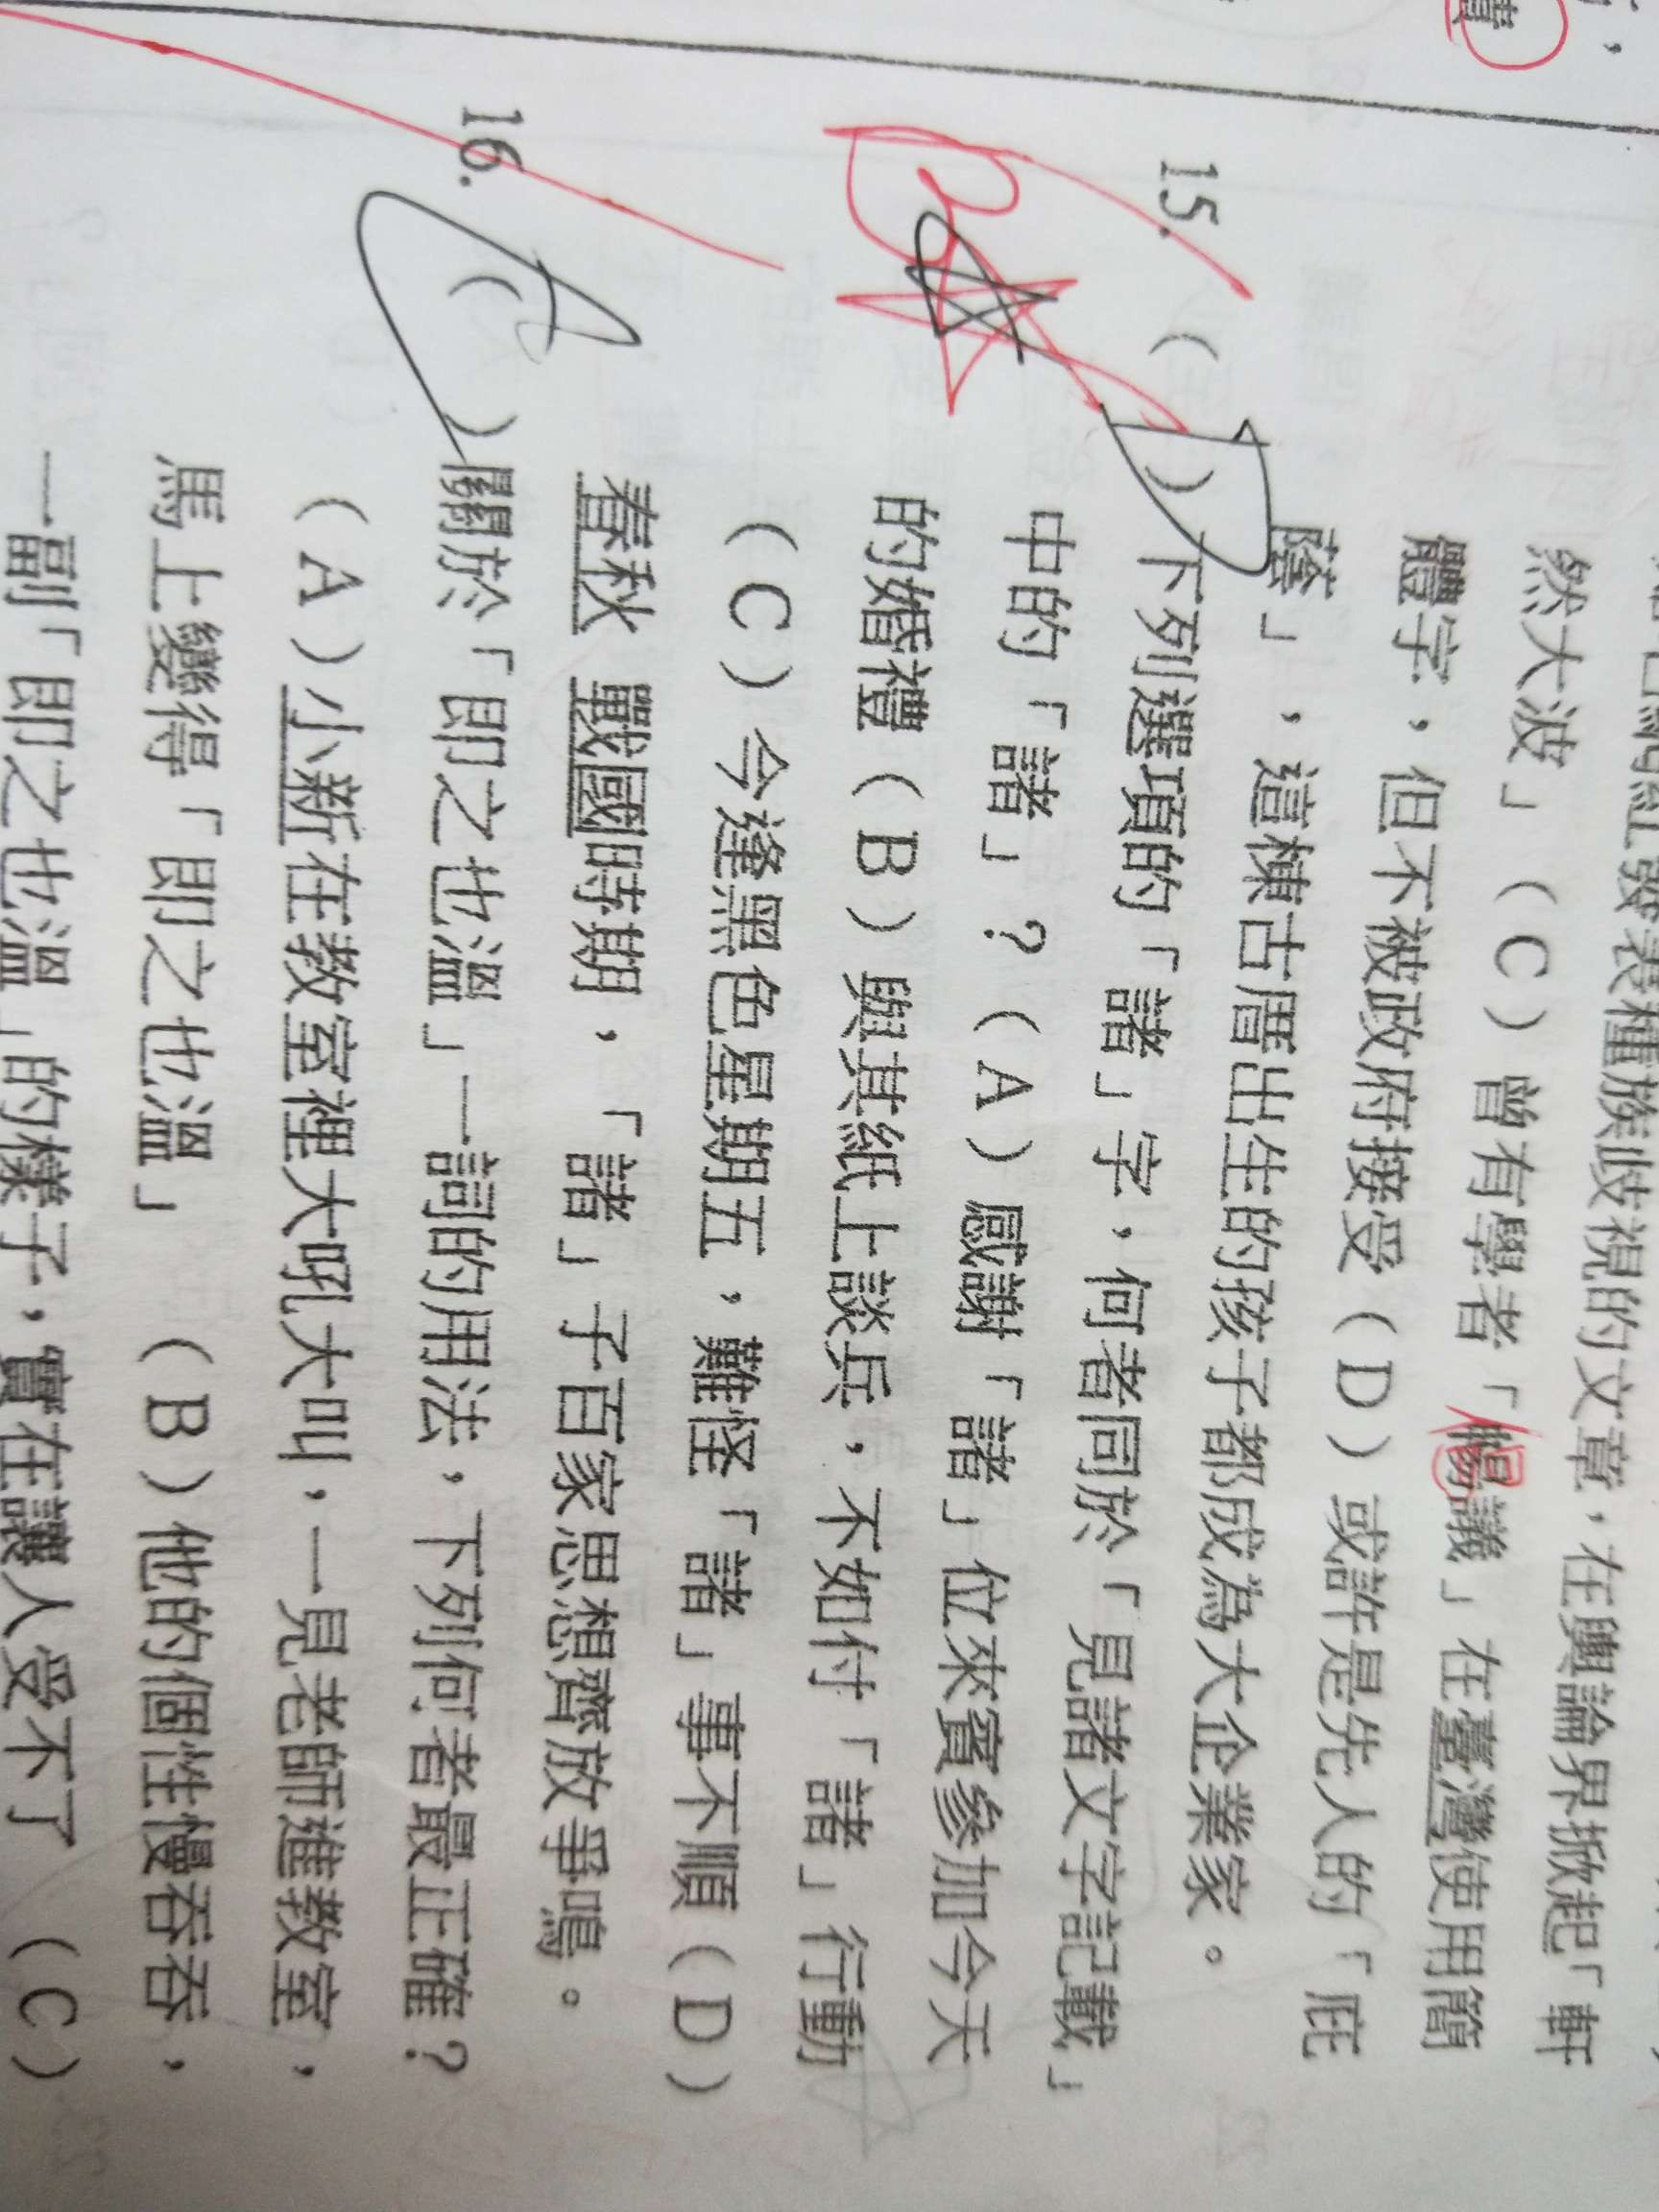 然大波」（C）曾有學者「倡議」在臺灣使用簡
體字，但不被政府接受（D）或許是先人的「庇
蔭」，這棟古厝出生的孩子都成為大企業家。
15.（ ）下列選項的「諸」字，何者同於「見諸文字記載」
中的「諸」？（A）感謝「諸」位來賓參加今天
的婚禮（B）與其紙上談兵，不如付「諸」行動
（C）今逢黑色星期五，難怪「諸」事不順（D）
春秋 戰國時期，「諸」子百家思想齊放爭鳴。
B
16.（ ）關於「即之也溫」一詞的用法，下列何者最正確？
（A）小新在教室裡大吼大叫，一見老師進教室，
馬上變得「即之也溫」（B）他的個性慢吞吞，
一副「即之也溫」的樣子，實在讓人受不了（C）